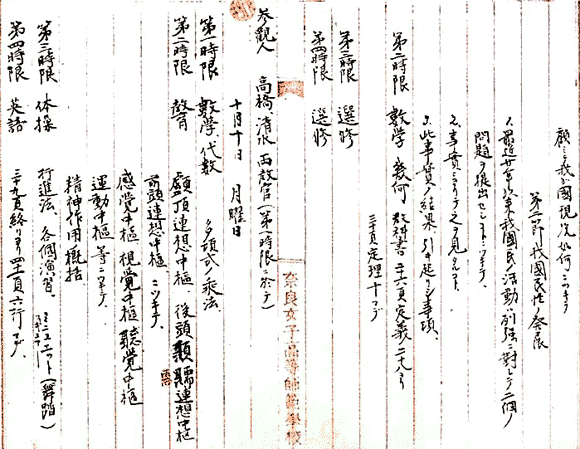 顧ミテ我ガ國現況如何ニツキテ
第二節 我國民性ノ發展
1、最近廿年以来我國民ノ活動ノ前張ニ對シテ二個ノ
問題ヲ提出セシコトニツキテ、
2、事實ニヨリテ之ヲ見タルコト
3、此事實ノ結果引キ起リシ事項、
第二時限 數學 幾何 教科書 三十六頁定義二十八ヨリ
三十頁定理十マデ
第三時限 選修
第四時限 選修
参觀人 高橋 清水 両教官(第一時限ニ於テ)
十月十日 月曜日
第一時限 數學 代數 多項式ノ乗法
第二時限 教育 顱頂連想中樞、後頭顳顬連想中樞
前頭連想中樞 ニツキテ、
感覺中樞 視覺中樞 聽覺中樞
運動中樞 等ニツキテ、
精神作用概括
第三時限 体操 行進法、各個演習、ミニュエット(舞踏)
第四時限 英語 三十九頁終リヨリ四十一頁六行マデ、
奈良女子高等師範學校